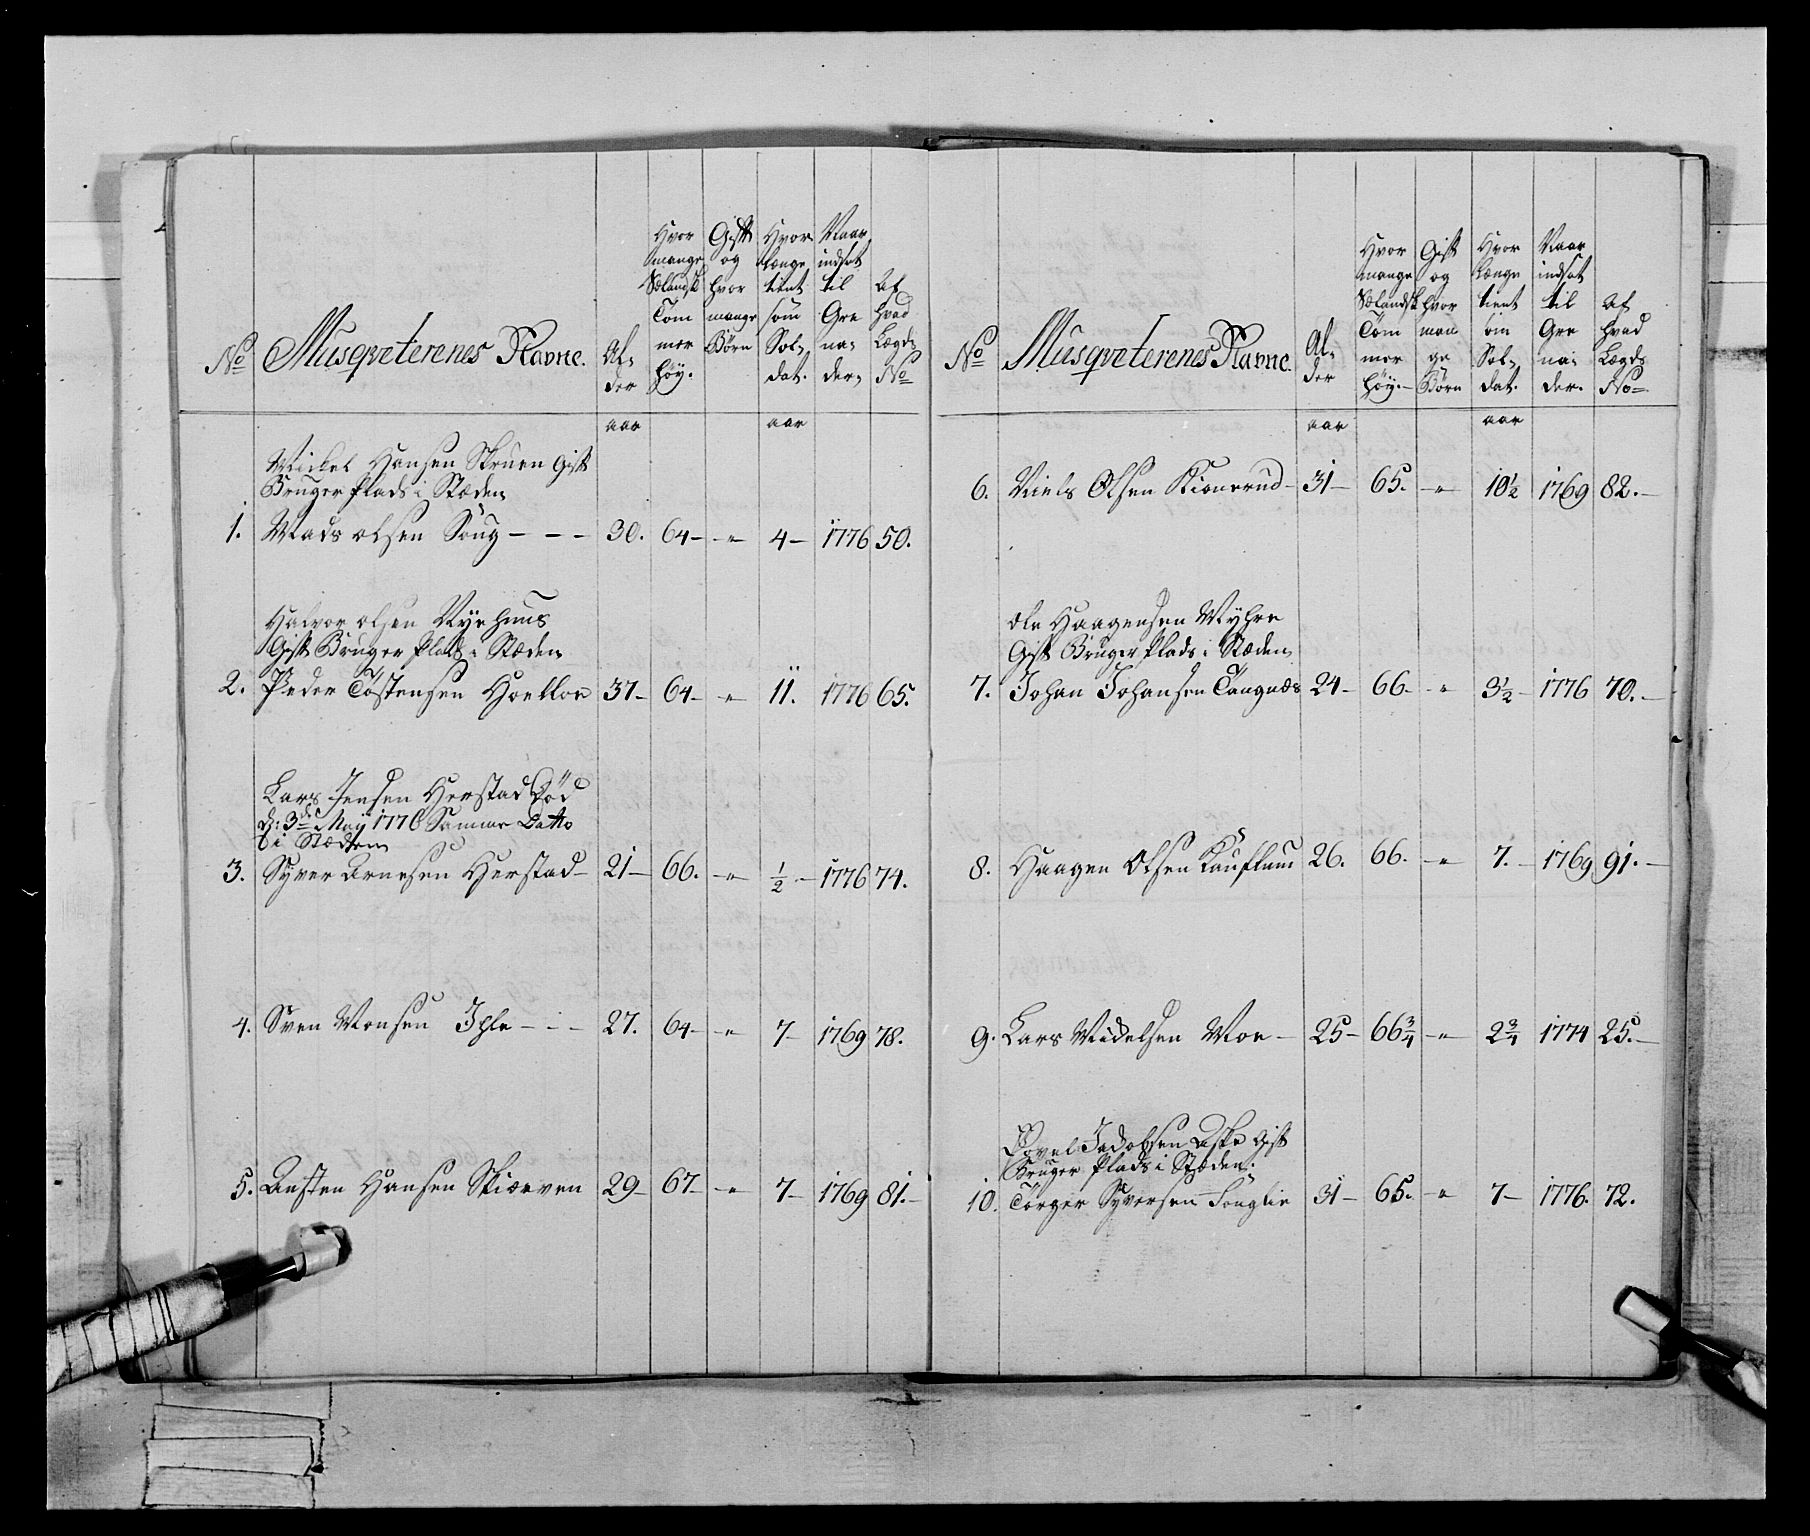 No
Musqveterenes Navne.
Al-
der
Hvor
mange
Sælandsk
Tom
mer
høy.
Gift
og
hvor
mange
Børn
Hvor
længe
tient
som
Sol-
dat.
Naar
indsat
til
Gre
na-
der.
Af
hvad
Lægds
No
aar
aar
Mickel Hansen Skruen Gift
Bruger Plads i Stæden
1. Mads olsen Soug - - - 30. 64- -"- 4- 1776 50.
Halvor olsen Nyehuus
Gift Bruger Plads i Stæden
2. Peder Tostensen 37- 64- -"- 11. 1776 65.
Lars Jensen Herstad Død
d: 3de Maij 1776 Samme Datto
i Stæden
3. Syver Arnesen Herstad- 21- 66. -"- ½- 1776 74.
4. Sven Monsen Ihle - - - 27. 64- -"- 7- 1769 78.
5. Aasten Hansen Skiærven 29- 67- -"- 7- 1769 81.-
No
Musqveterenes Navne.
Al-
der
Hvor
mange
Sælandsk
Tom
mer
høy.-
Gift
og
hvor
man
ge
Børn
Hvor
længe
tient
som
Sol-
dat.
Naar
indsat
til
Gre
na-
der.
Af
hvad
Lægds
No
aar
aar
6. Niels Olsen Kionerud- 31- 65. -"- 10½ 1769 82.-
Ole Haagensen Myhre
Gift Bruger Plads i Stæden
7. Johan Johansen Tangnæs 24- 66- -"- 3½- 1776 70.-
8. Haagen Olsen 26. 66. -"- 7.- 1769 91.-
9. Lars Mickelsen Moe- 25- 66¾ -"- 2¾ 1774 25.-
Povel Jacobsen Aske Gift
Bruger Plads i Stæden.
10. Torger Syversen 31- 65. -"- 7- 1776. 72.